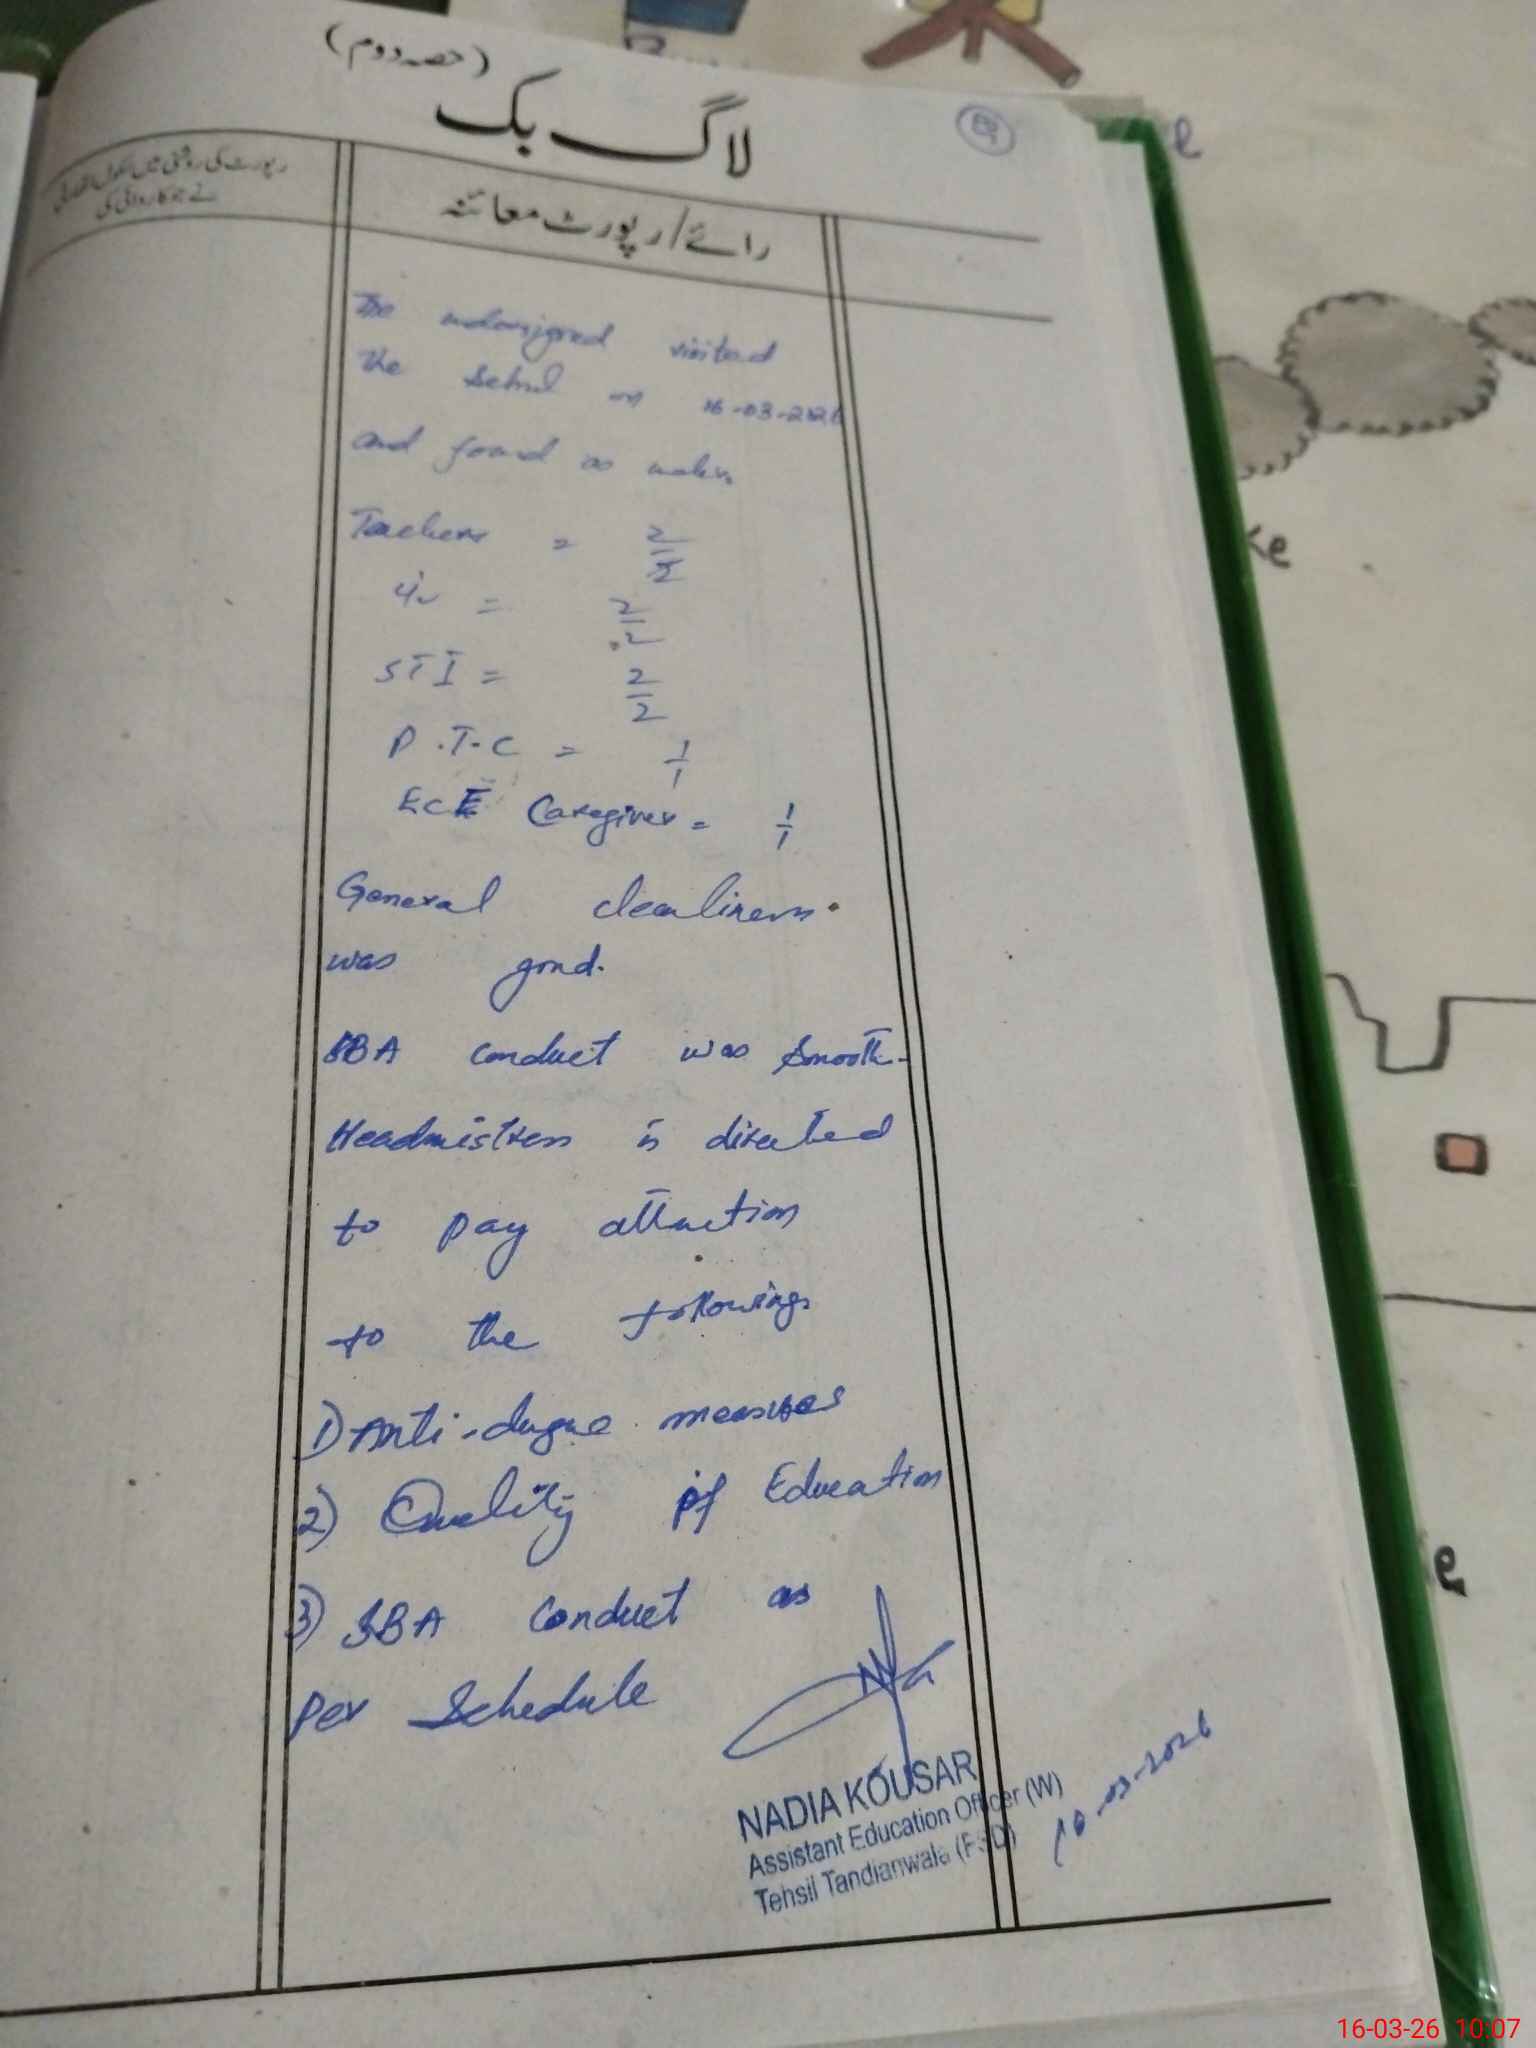 (حصہ دوم)
لاگ بک
رپورٹ کی روشنی میں سکول اتھارٹی
نے جو کاروائی کی
رائے/رپورٹ معائنہ
The undersigned visited
the School on 16-03-2026
and found as under.
Teachers = 2/2
= 2/2
STI = 2/2
P.T.C = 1/1
ECE Caregiver = 1/1
General cleanliness
was good.
SBA conduct was Smooth.
Headmistress is directed
to pay attention
to the followings
1) Anti-dengue measures
2) Quality of Education
3) SBA Conduct as
per Schedule
NADIA KOUSAR
Assistant Education Officer (W)
Tehsil Tandianwala (FSD)
16-03-2026
16-03-26 10:07